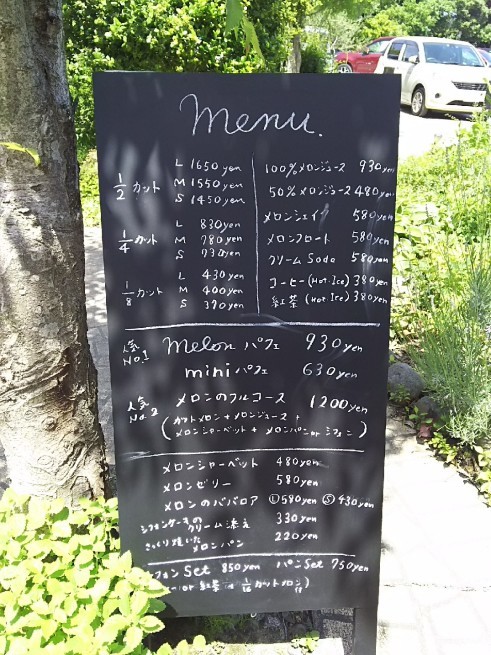 Menu.
1/2 カット L 1650yen
M 1550yen
S 1450yen
1/4 カット L 830yen
M 780yen
S 730yen
1/8 カット L 430yen
M 400yen
S 370yen
100%メロンジュース 930yen
50%メロンジュース 480yen
メロンシェイク 580yen
メロンフロート 580yen
クリームSoda 580yen
コーヒー(Hot・Ice) 380yen
紅茶(Hot・Ice) 380yen
人気No.1 Melonパフェ 930yen
miniパフェ 630yen
人気No.2 メロンのフルコース 1200yen
(カットメロン+メロンジュース+
メロンシャーベット+メロンパンorシフォン)
メロンシャーベット 480yen
メロンゼリー 580yen
メロンのババロア Ⓛ580yen Ⓢ430yen
シフォンケーキのクリーム添え 330yen
さっくり焼いたメロンパン 220yen
フォンSet 850yen パンSet 750yen
or 紅茶 1/16カットメロン付)